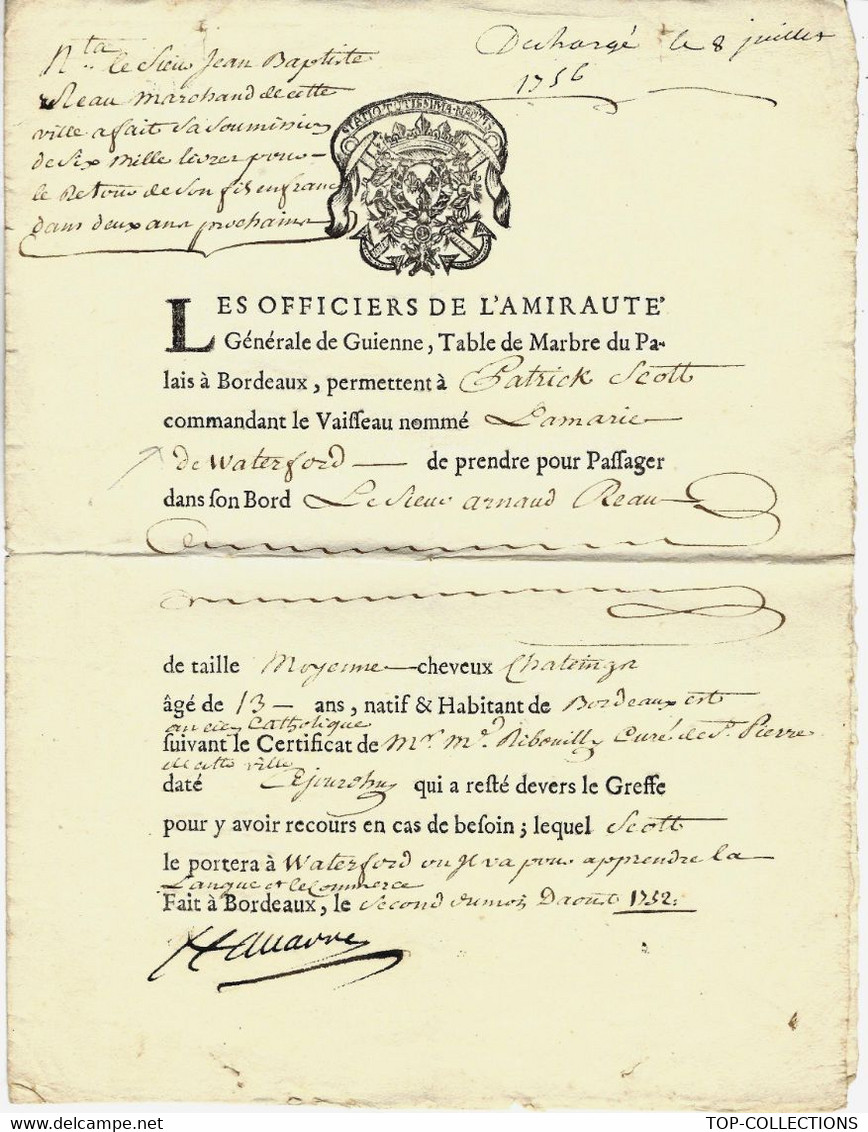 N.ta le Sieur Jean Baptiste
Reau marchand de cette
ville a fait Sa Soumission
de Six mille livres pour
le Retour de Son fils en france
dans deux ans prochains
Dechargé le 8 juillet
1756
STATIO TUTISSIMA NAUTIS
LES OFFICIERS DE L'AMIRAUTE'
Générale de Guienne, Table de Marbre du Pa-
lais à Bordeaux, permettent à Patrick Scott
commandant le Vaiſſeau nommé Lamarie
de Waterford — de prendre pour Paſſager
dans ſon Bord Le Sieur Arnaud Reau
de taille Moyenne — cheveux
âgé de 13 — ans, natif & Habitant de Bordeaux est
ancien Catholique
ſuivant le Certificat de Mr. Mr. Ribouilly Curé de St. Pierre
de cette ville
daté Cejourdhuy qui a reſté devers le Greffe
pour y avoir recours en cas de beſoin; lequel Scott
le portera à Waterford ou Il va pour apprendre la
Langue et le Commerce
Fait à Bordeaux, le Second du mois Daout 1752.
TOP-COLLECTIONS